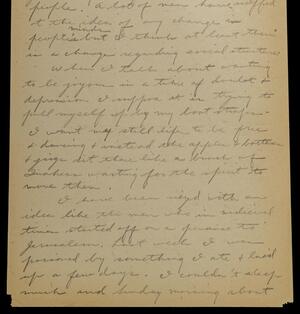 peoples. A lot of men have scoffed
at the idea of any change in
peoples minds but I think at least there
is a change regarding social structure.
When I talk about wanting
to be joyous in a time of doubt &
depression I suppose it is trying to
pull myself up by my boot straps.
I want my still life to be free
& dancing & instead the apples & bottles
& jugs sit there like a bunch of
Quakers waiting for the spirit to
move them.
I have been with an
idea like the man who in medieval
times started off on a to
Jerusalem. Last week I was
poisoned by something I ate & laid
up a few days. I couldn't sleep
much and Sunday morning about